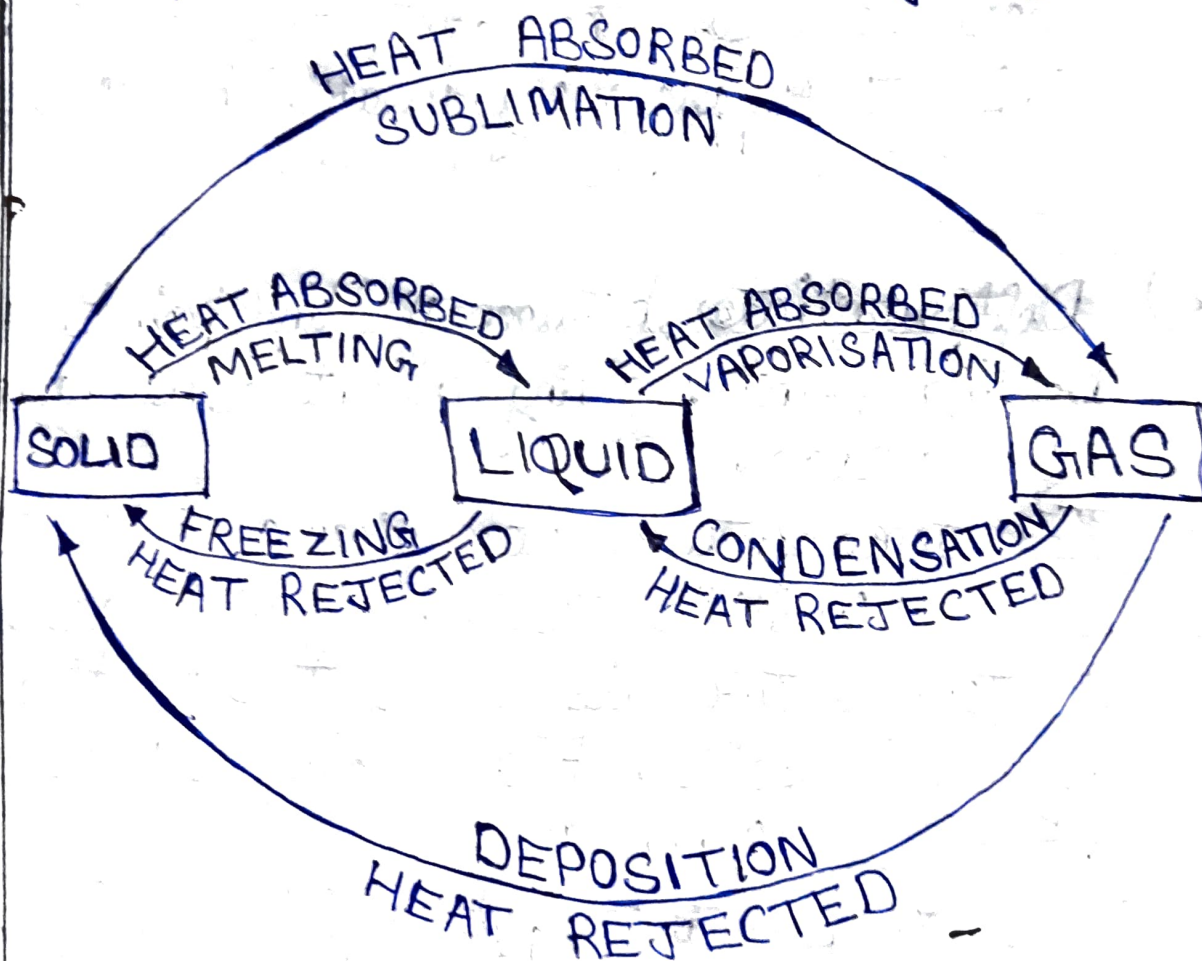 HEAT ABSORBED
SUBLIMATION
HEAT ABSORBED
MELTING
HEAT ABSORBED
VAPORISATION
SOLID
LIQUID
GAS
FREEZING
HEAT REJECTED
CONDENSATION
HEAT REJECTED
DEPOSITION
HEAT REJECTED